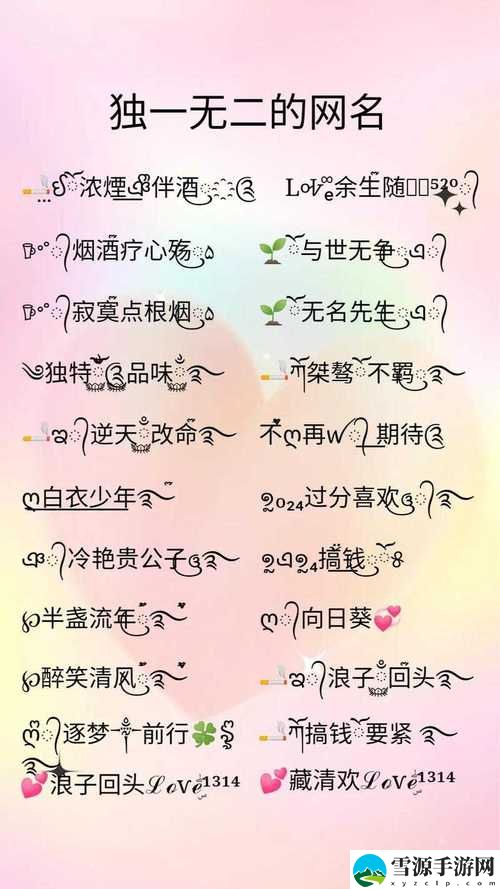 独一无二的网名
浓煙伴酒 Love余生随⁵²⁰
烟酒疗心殇 与世无争
寂寞点根烟 无名先生
独特品味 桀骜不羁
逆天改命 不ღ再w期待
ღ白衣少年 2024过分喜欢
冷艳贵公子 搞钱
℘半盏流年 ღ向日葵💞
℘醉笑清风 浪子回头
ღ逐梦༒前行🍀 搞钱要紧
💞浪子回头ℒℴvℯ¹³¹⁴ 💞藏清欢ℒℴvℯ¹³¹⁴
雪源手游网
xyzclp.com